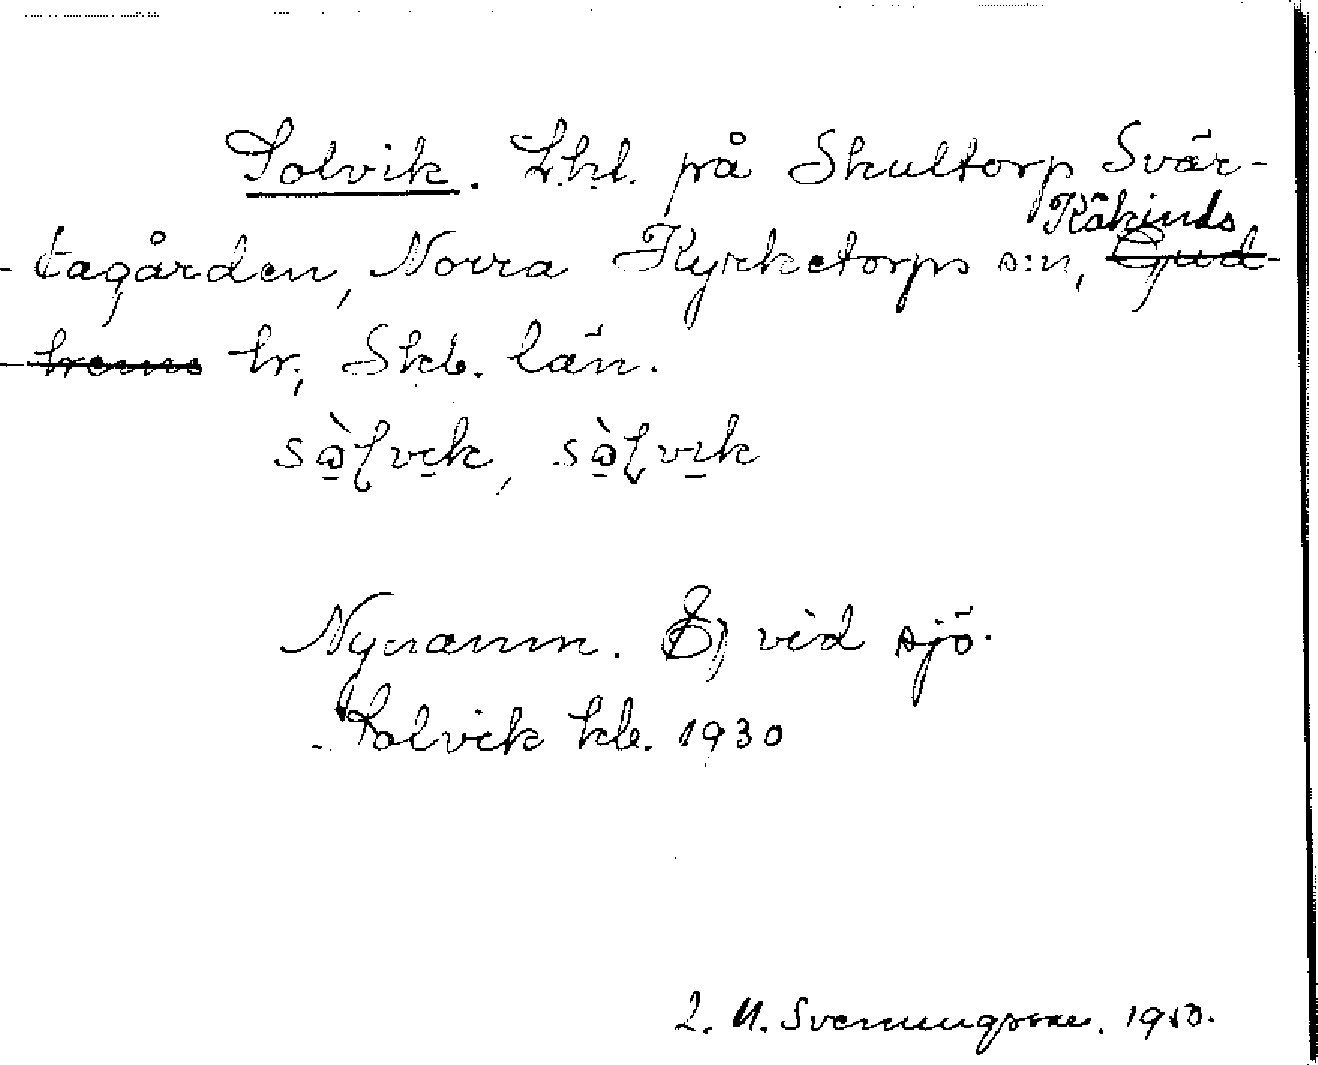 Solvik. Lht. på Skultorp Svär-
Kåkinds
-tagården, Norra Kyrketorps s:n, Gud-
-hems hr, Skb. län.
sò̱lvi̱k, sò̱lvi̱k
Nynamn. Ej vid sjö.
Solvik kb. 1930
Svenungsson. 1950.